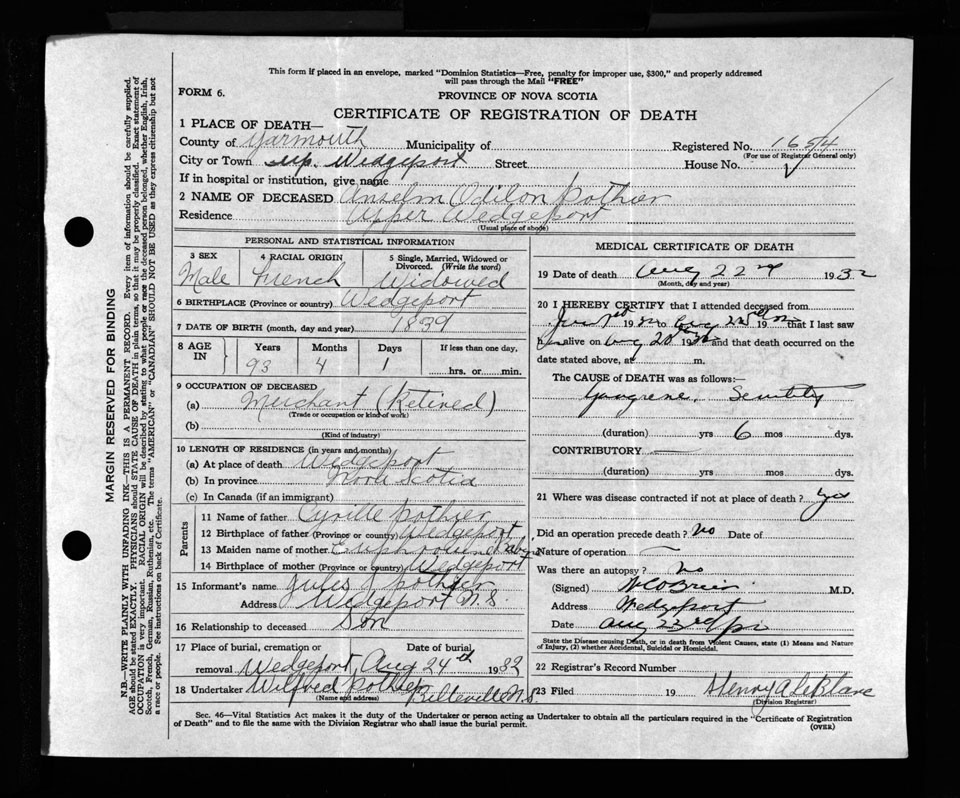 This form if placed in an envelope, marked "Dominion Statistics—Free, penalty for improper use, $300," and properly addressed
will pass through the Mail "FREE"
FORM 6.
PROVINCE OF NOVA SCOTIA
CERTIFICATE OF REGISTRATION OF DEATH
1 PLACE OF DEATH—
County of Yarmouth Municipality of Registered No. 1654
(For use of Registrar General only)
City or Town Up. Wedgeport Street House No.
If in hospital or institution, give name
2 NAME OF DECEASED Anselm Odilon Pothier
Residence Upper Wedgeport
(Usual place of abode)
PERSONAL AND STATISTICAL INFORMATION
3 SEX 4 RACIAL ORIGIN 5 Single, Married, Widowed or
Divorced. (Write the word)
Male French Widowed
6 BIRTHPLACE (Province or country) Wedgeport
7 DATE OF BIRTH (month, day and year) 1839
8 AGE IN Years Months Days If less than one day,
93 4 1 hrs. or min.
9 OCCUPATION OF DECEASED
(a) Merchant (Retired)
(Trade or occupation or kind of work)
(b)
(Kind of industry)
10 LENGTH OF RESIDENCE (in years and months)
(a) At place of death Wedgeport
(b) In province Nova Scotia
(c) In Canada (if an immigrant)
Parents
11 Name of father Cyrille Pothier
12 Birthplace of father (Province or country) Wedgeport
13 Maiden name of mother
14 Birthplace of mother (Province or country) Wedgeport
15 Informant's name Jules J Pothier
Address Wedgeport N.S.
16 Relationship to deceased Son
17 Place of burial, cremation or Date of burial,
removal Wedgeport, Aug 24th 1932
18 Undertaker Wilfred Pothier Belleville N.S.
(Name and address)
MEDICAL CERTIFICATE OF DEATH
19 Date of death Aug 22nd 1932
(Month, day and year)
20 I HEREBY CERTIFY that I attended deceased from
1st 1932 to Aug 22nd 1932 that I last saw
h alive on Aug 20 1932 and that death occurred on the
date stated above, at m.
The CAUSE of DEATH was as follows:—
Gangrene, Senility
(duration) yrs 6 mos dys.
CONTRIBUTORY —
(duration) yrs mos dys.
21 Where was disease contracted if not at place of death? yes
Did an operation precede death? no Date of
Nature of operation —
Was there an autopsy? no
(Signed) M.D.
Address Wedgeport
Date Aug 23rd
State the Disease causing Death, or in death from Violent Causes, state (1) Means and Nature
of Injury, (2) whether Accidental, Suicidal or Homicidal.
22 Registrar's Record Number
23 Filed 19 Henry A LeBlanc
(Division Registrar)
Sec. 46—Vital Statistics Act makes it the duty of the Undertaker or person acting as Undertaker to obtain all the particulars required in the "Certificate of Registration
of Death" and to file the same with the Division Registrar who shall issue the burial permit.
(OVER)
MARGIN RESERVED FOR BINDING
N.B.—WRITE PLAINLY WITH UNFADING INK—THIS IS A PERMANENT RECORD. Every item of information should be carefully supplied.
AGE should be stated EXACTLY. PHYSICIANS should STATE CAUSE OF DEATH in plain terms, so that it may be properly classified. Exact statement of
OCCUPATION is very important. RACIAL ORIGIN will be described by stating to what people or race the deceased person belonged, whether English, Irish,
Scotch, French, German, Russian, Ruthenian, etc. The terms "AMERICAN" or "CANADIAN" SHOULD NOT BE USED as they express citizenship but not
a race or people. See instructions on back of Certificate.